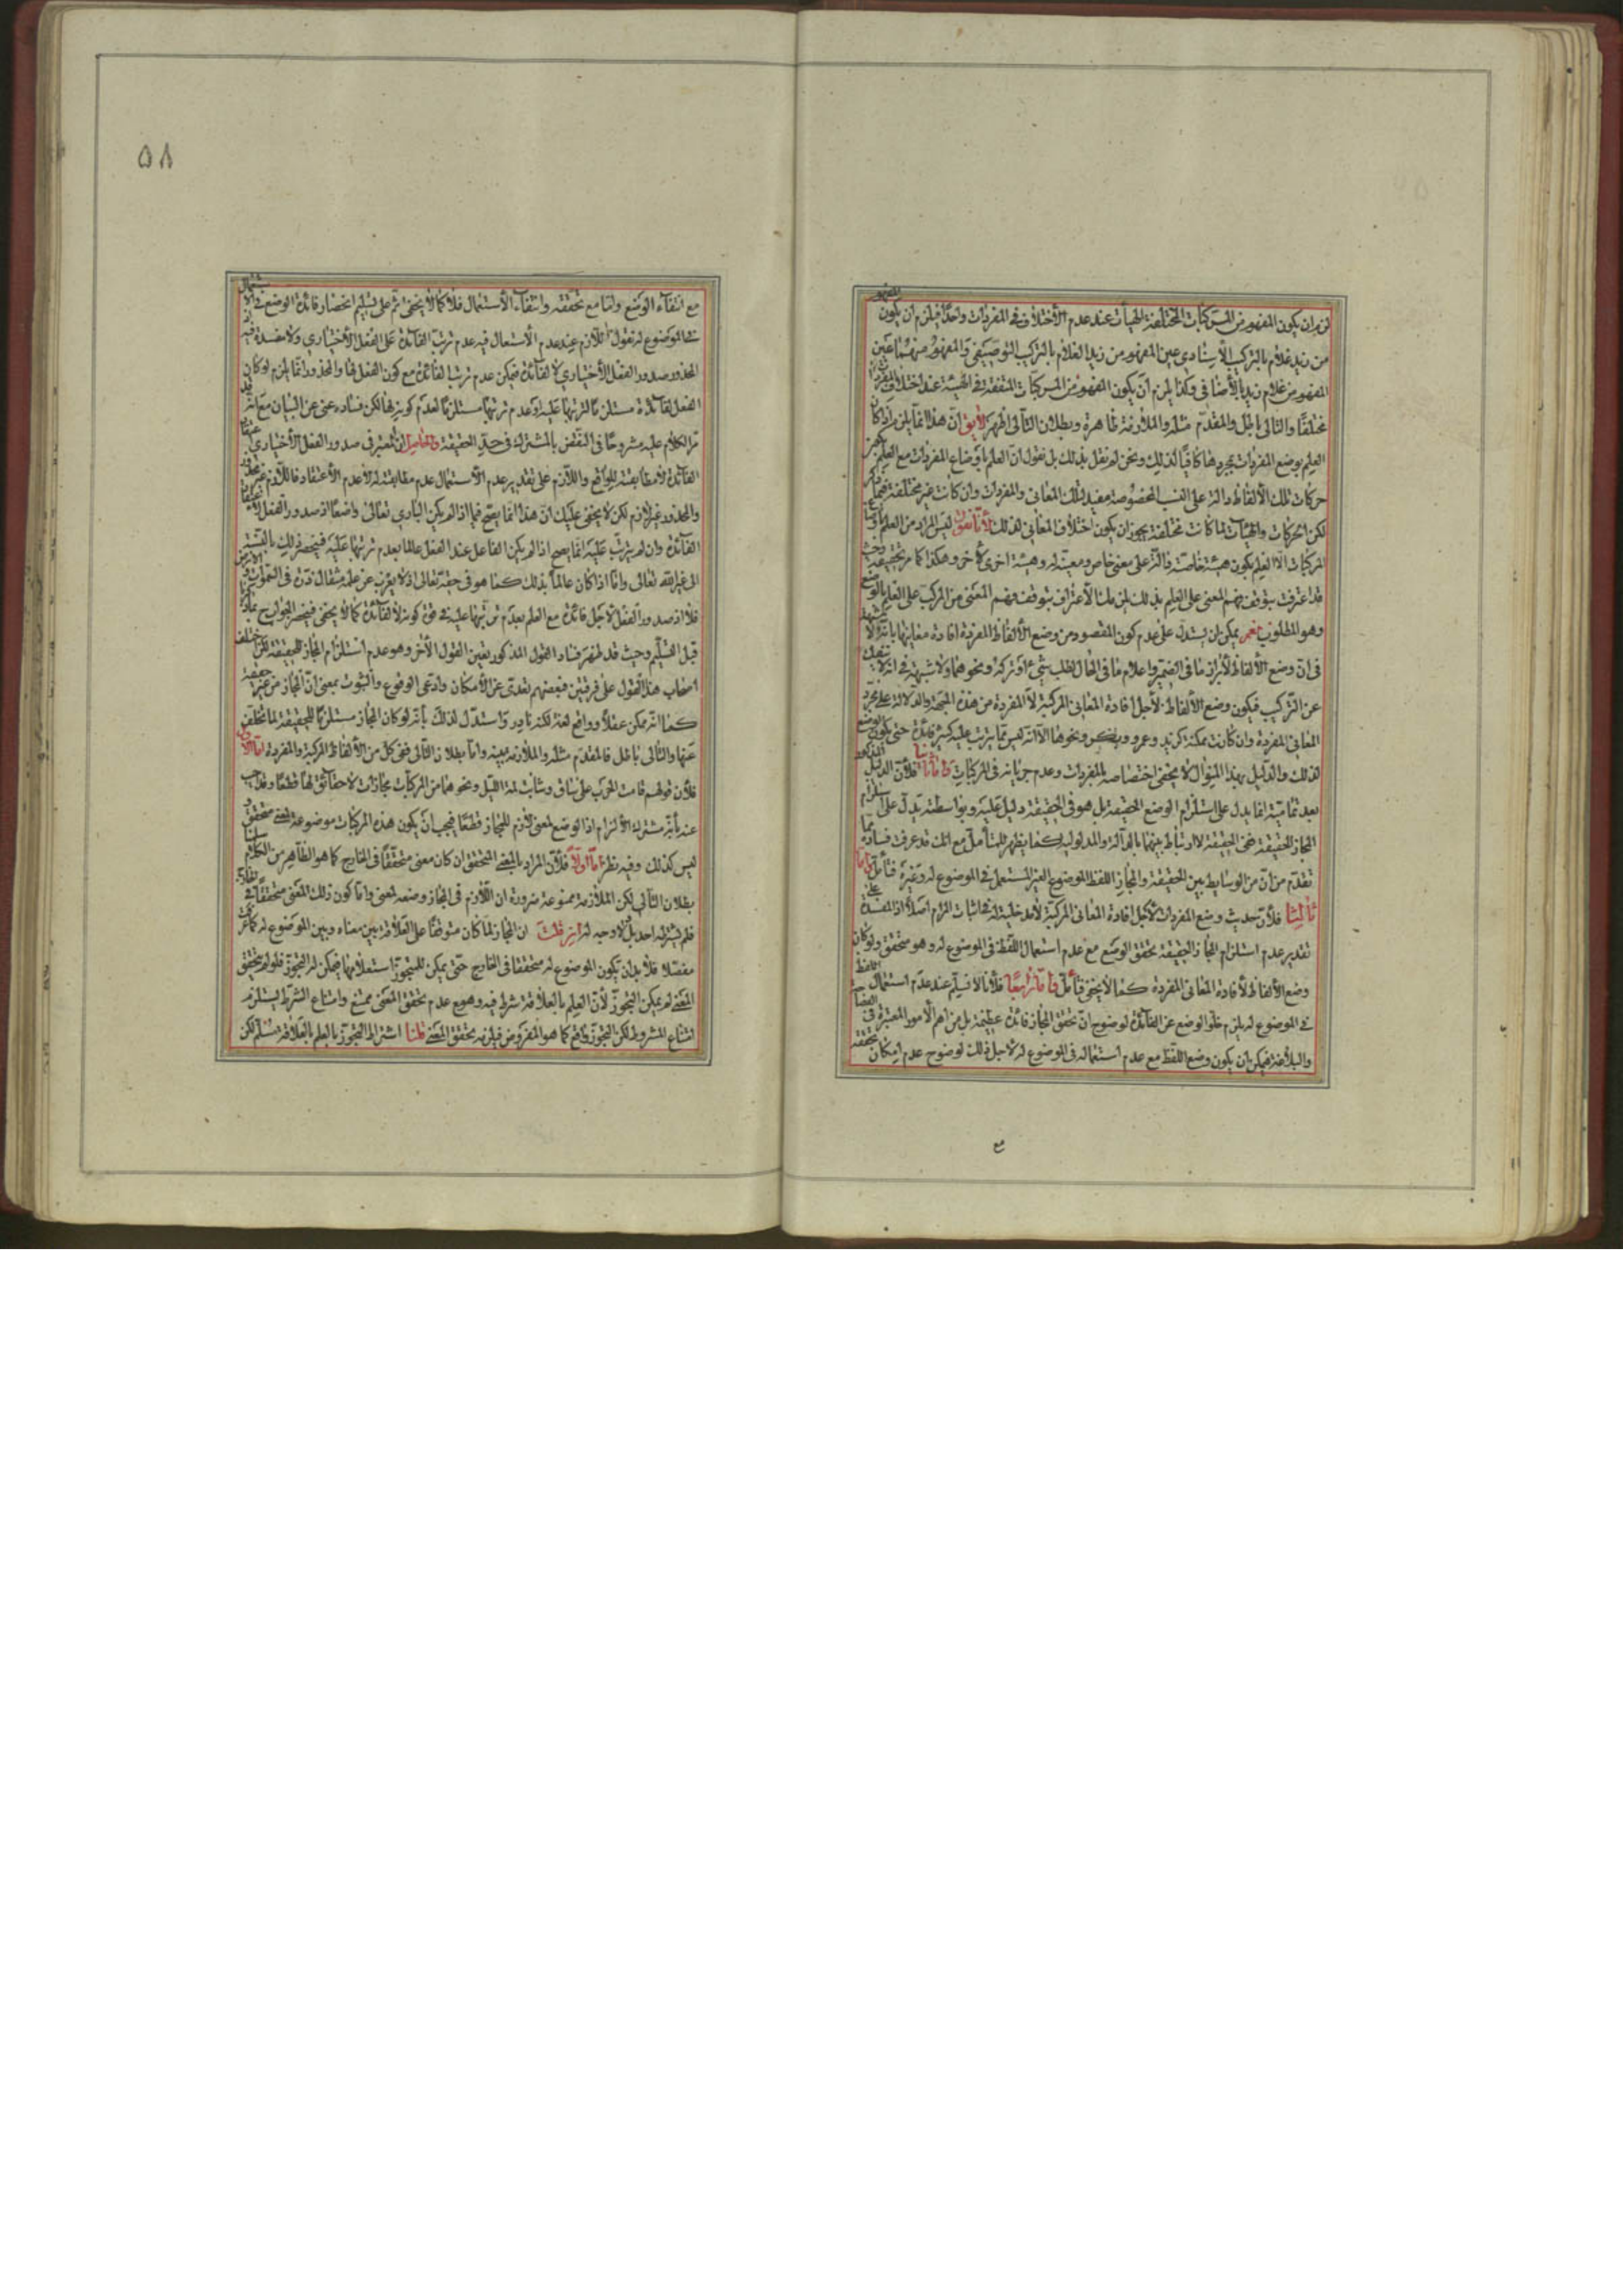 لزم ان يكون المفهوم من المركبات المختلفة الهيأت عند عدم الأختلاف في المفردات واحدًا فيلزم ان يكون المفهوم
من زيد غلام بالتركيب الأسنادي عين المفهوم من زيد الغلام بالتركيب التوصيفي والمفهوم منهما عين
المفهوم من غلام زيد بالأضافي وكذا يلزم أن يكون المفهوم من المركبات المتفقة في الهيئة عند اختلاف المفردات
مختلفًا والتالي باطل والمقدم مثله والملازمة ظاهرة وبطلان التالي اظهر لايق ان هذا انما يلزم اذا كان
العلم بوضع المفردات بمجردها كافيًا لذلك ونحن لم نقل بذلك بل نقول ان العلم باوضاع المفردات مع العلم
حركات تلك الألفاظ دالة على النسب المخصوصة مفيد لتلك المعاني والمفردات وان كانت غير مختلفة فيما
لكن الحركات والهيئات لما كانت مختلفة يجوز ان يكون اختلاف المعاني لذلك لأنا نقول ليس المراد من العلم باوضاع
المركبات الا العلم بكون هيئة خاصة دالة على معنى خاص ومعينة له وهيئة اخرى لأخر وهكذا كما مر تحقيقه وحيث
قد اعترفت بتوقف فهم المعنى على العلم بذلك لزمك الأعتراف بتوقف فهم المعنى من المركب على العلم بالوضع
وهو المطلوب نعم يمكن ان يستدل على عدم كون المقصود من وضع الألفاظ المفردة افادة معانيها بانه لا شبهة
في ان وضع الألفاظ لأبراز ما في الضمير واعلام ما في البال لطلب شيء او تركه ونحوهما ولا شبهة في انه لا ينفك
عن التركيب فيكون وضع الألفاظ لأجل افادة المعاني المركبة لا المفردة من هذه الجهة والدلالة على مجرد
المعاني المفردة وان كانت ممكنة كزيد وعمرو وبكر ونحوها الا انه ليس مما يترتب عليه كثير فائدة حتى يكون الوضع
لذلك والدليل بهذا المنوال لا يخفى اختصاصه بالمفردات وعدم جريانه في المركبات واما ثانيا فلأن الدليل المذكور
بعد تماميته انما يدل على استلزام الوضع الحقيقة بل هو في الحقيقة دليل عليه وبواسطته يدل على استلزام
المجاز للحقيقة ضمن الحقيقة لارتباط بينهما بالدالة والمدلولية كما يظهر للمتأمل مع انك قد عرفت فساده بما
تقدم من ان من الوسايط بين الحقيقة والمجاز اللفظ الموضوع الغير المستعمل في الموضوع له وغيره فتأمل واما
ثالثا فلأن حديث وضع المفردات لأجل افادة المعاني المركبة لا مدخلية له في اثبات المرام اصلاً اذ المفسدة على
تقدير عدم استلزام المجاز الحقيقة تحقق الوضع مع عدم استعمال اللفظ في الموضوع له وهو متحقق ولو كان
وضع الألفاظ لأفادة المعاني المفردة كما لا يخفى فتأمل واما رابعًا فلأنا لا نسلم عند عدم استعمال اللفظ
في الموضوع له يلزم خلو الوضع عن الفائدة لوضوح ان تحقق المجاز فائدة عظيمة بل من اهم الأمور المعتبرة في
والبلاغة فيمكن ان يكون وضع اللفظ مع عدم استعماله في الموضوع له لاجل ذلك لوضوح عدم امكان تحققه
مع
٥٨
مع انتفاء الوضع واما مع تحققه وانتفاء الأستعمال فلا كما لا يخفى ثم على تسليم انحصار فائدة الوضع في الاستعمال
في الموضوع له نقول اللازم عند عدم الأستعمال فيه عدم ترتب الفائدة على الفعل الأختياري ولا مفسدة فيه
المحذور صدور الفعل الأختياري لا لفائدة فيمكن عدم ترتب الفائدة مع كون الفعل لها والمحذور انما يلزم لو كان
الفعل لفائدة مستلزمًا لترتبها عليه او عدم ترتبها مستلزمًا لعدم كونه لها لكن فساده غني عن البيان مع انه قد
مر الكلام عليه مشروحًا في النقض بالمشترك في حد الحقيقة والحاصل ان المعتبر في صدور الفعل الأختياري
الفائدة لا مطابقته للواقع واللازم على تقدير عدم الأستعمال عدم مطابقته له لا عدم الأعتقاد فاللازم غير محذور
والمحذور غير لازم لكن لا يخفى عليك ان هذا انما يصح فيما اذا لم يكن الباري تعالى واضعًا اذ صدور الفعل
الفائدة وان لم يترتب عليه انما يصح اذا لم يكن الفاعل عند الفعل عالما بعدم ترتبها عليه فيخص ذلك بالنسبة
الى غير الله تعالى واما اذا كان عالمًا بذلك كما هو في حقه تعالى اذ لا يعزب عن علمه مثقال ذرة في السموات والأرض
فلا اذ صدور الفعل لأجل فائدة مع العلم بعدم ترتبها عليه في قوة كونه لا لفائدة كما لا يخفى فينحصر الجواب ح بما
قبل التسليم وحيث قد ظهر فساد القول المذكور تعين القول الأخر وهو عدم استلزام المجاز للحقيقة لكن اختلف
اصحاب هذا القول على فرقتين فبعضهم تعدى عن الأمكان وادعى الوقوع والثبوت بمعنى ان المجاز من غير حقيقة
كما انه ممكن عقلاً وواقع لغة لكنه نادر واستدل لذلك بأنه لو كان المجاز مستلزمًا للحقيقة لما تخلف
عنها والتالي باطل فالمقدم مثله والملازمة بينة واما بطلان التالي ففي كل من الألفاظ المركبة والمفردة اما الأول
فلأن قولهم قامت الحرب على ساق وشابت لمة الليل ونحوهما من المركبات مجازات لا حقائق لها قطعا وقد اجيب
عنه بأنه مشترك الألزام اذ الوضع لمعنى لازم للمجاز قطعًا فيجب ان يكون هذه المركبات موضوعة لمعنى متحقق و
ليس كذلك وفيه نظر اما اولاً فلأن المراد بالمعنى المتحقق ان كان معنى متحققًا في الخارج كما هو الظاهر من الكلام سلمنا
بطلان التالي لكن الملازمة ممنوعة ضرورة ان اللازم في المجاز وضعه لمعنى واما كون ذلك المعنى متحققًا في الخارج
فلم يشترطه احد بل لا وجه له فان قلت ان المجاز لما كان متوقفًا على العلاقة بين معناه وبين الموضوع له كما مر
مفصلا فلا بد ان يكون الموضوع له متحققا في الخارج حتى يمكن للمتجوز استعلامها فيمكن له التجوز فلو لم يتحقق
المعنى لم يمكن التجوز لأن العلم بالعلاقة شرط فيه وهو مع عدم تحقق المعنى ممتنع وامتناع الشرط يستلزم
امتناع المشروط لكن التجوز واقع كما هو المفروض فيلزمه تحقق المعنى قلنا اشتراط التجوز بالعلم بالعلاقة مسلم لكن